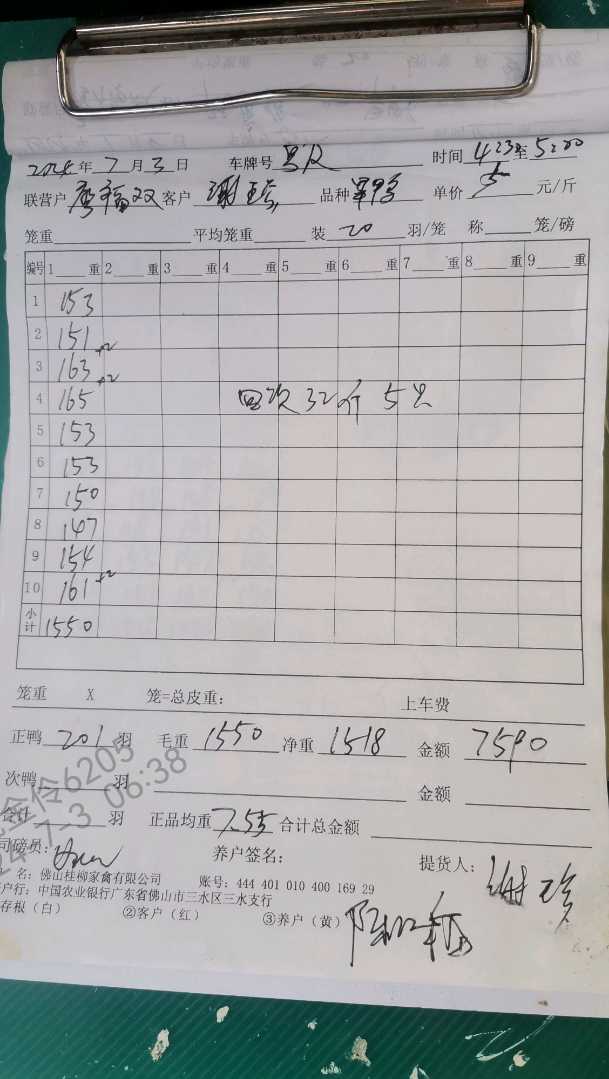 2024年 7 月 3 日 车牌号 时间 4:23至5:00
联营户 客户 谢 品种 单价 5 元/斤
笼重 平均笼重 装 20 羽/笼 称 笼/磅
编号 1 重 2 重 3 重 4 重 5 重 6 重 7 重 8 重 9 重
1 153
2 151 +2
3 163 +2
4 165 回次32斤 5只
5 153
6 153
7 150
8 147
9 154
10 161 +2
小计 1550
笼重 X 笼=总皮重: 上车费
正鸭 201 羽 毛重 1550 净重 1518 金额 7590
次鸭 羽 金额
合计 羽 正品均重 7.55 合计总金额
金伶6205
7-3 06:38
司磅员: 养户签名: 提货人: 谢
名: 佛山桂柳家禽有限公司 账号: 444 401 010 400 169 29
户行: 中国农业银行广东省佛山市三水区三水支行
存根(白) ②客户(红) ③养户(黄)